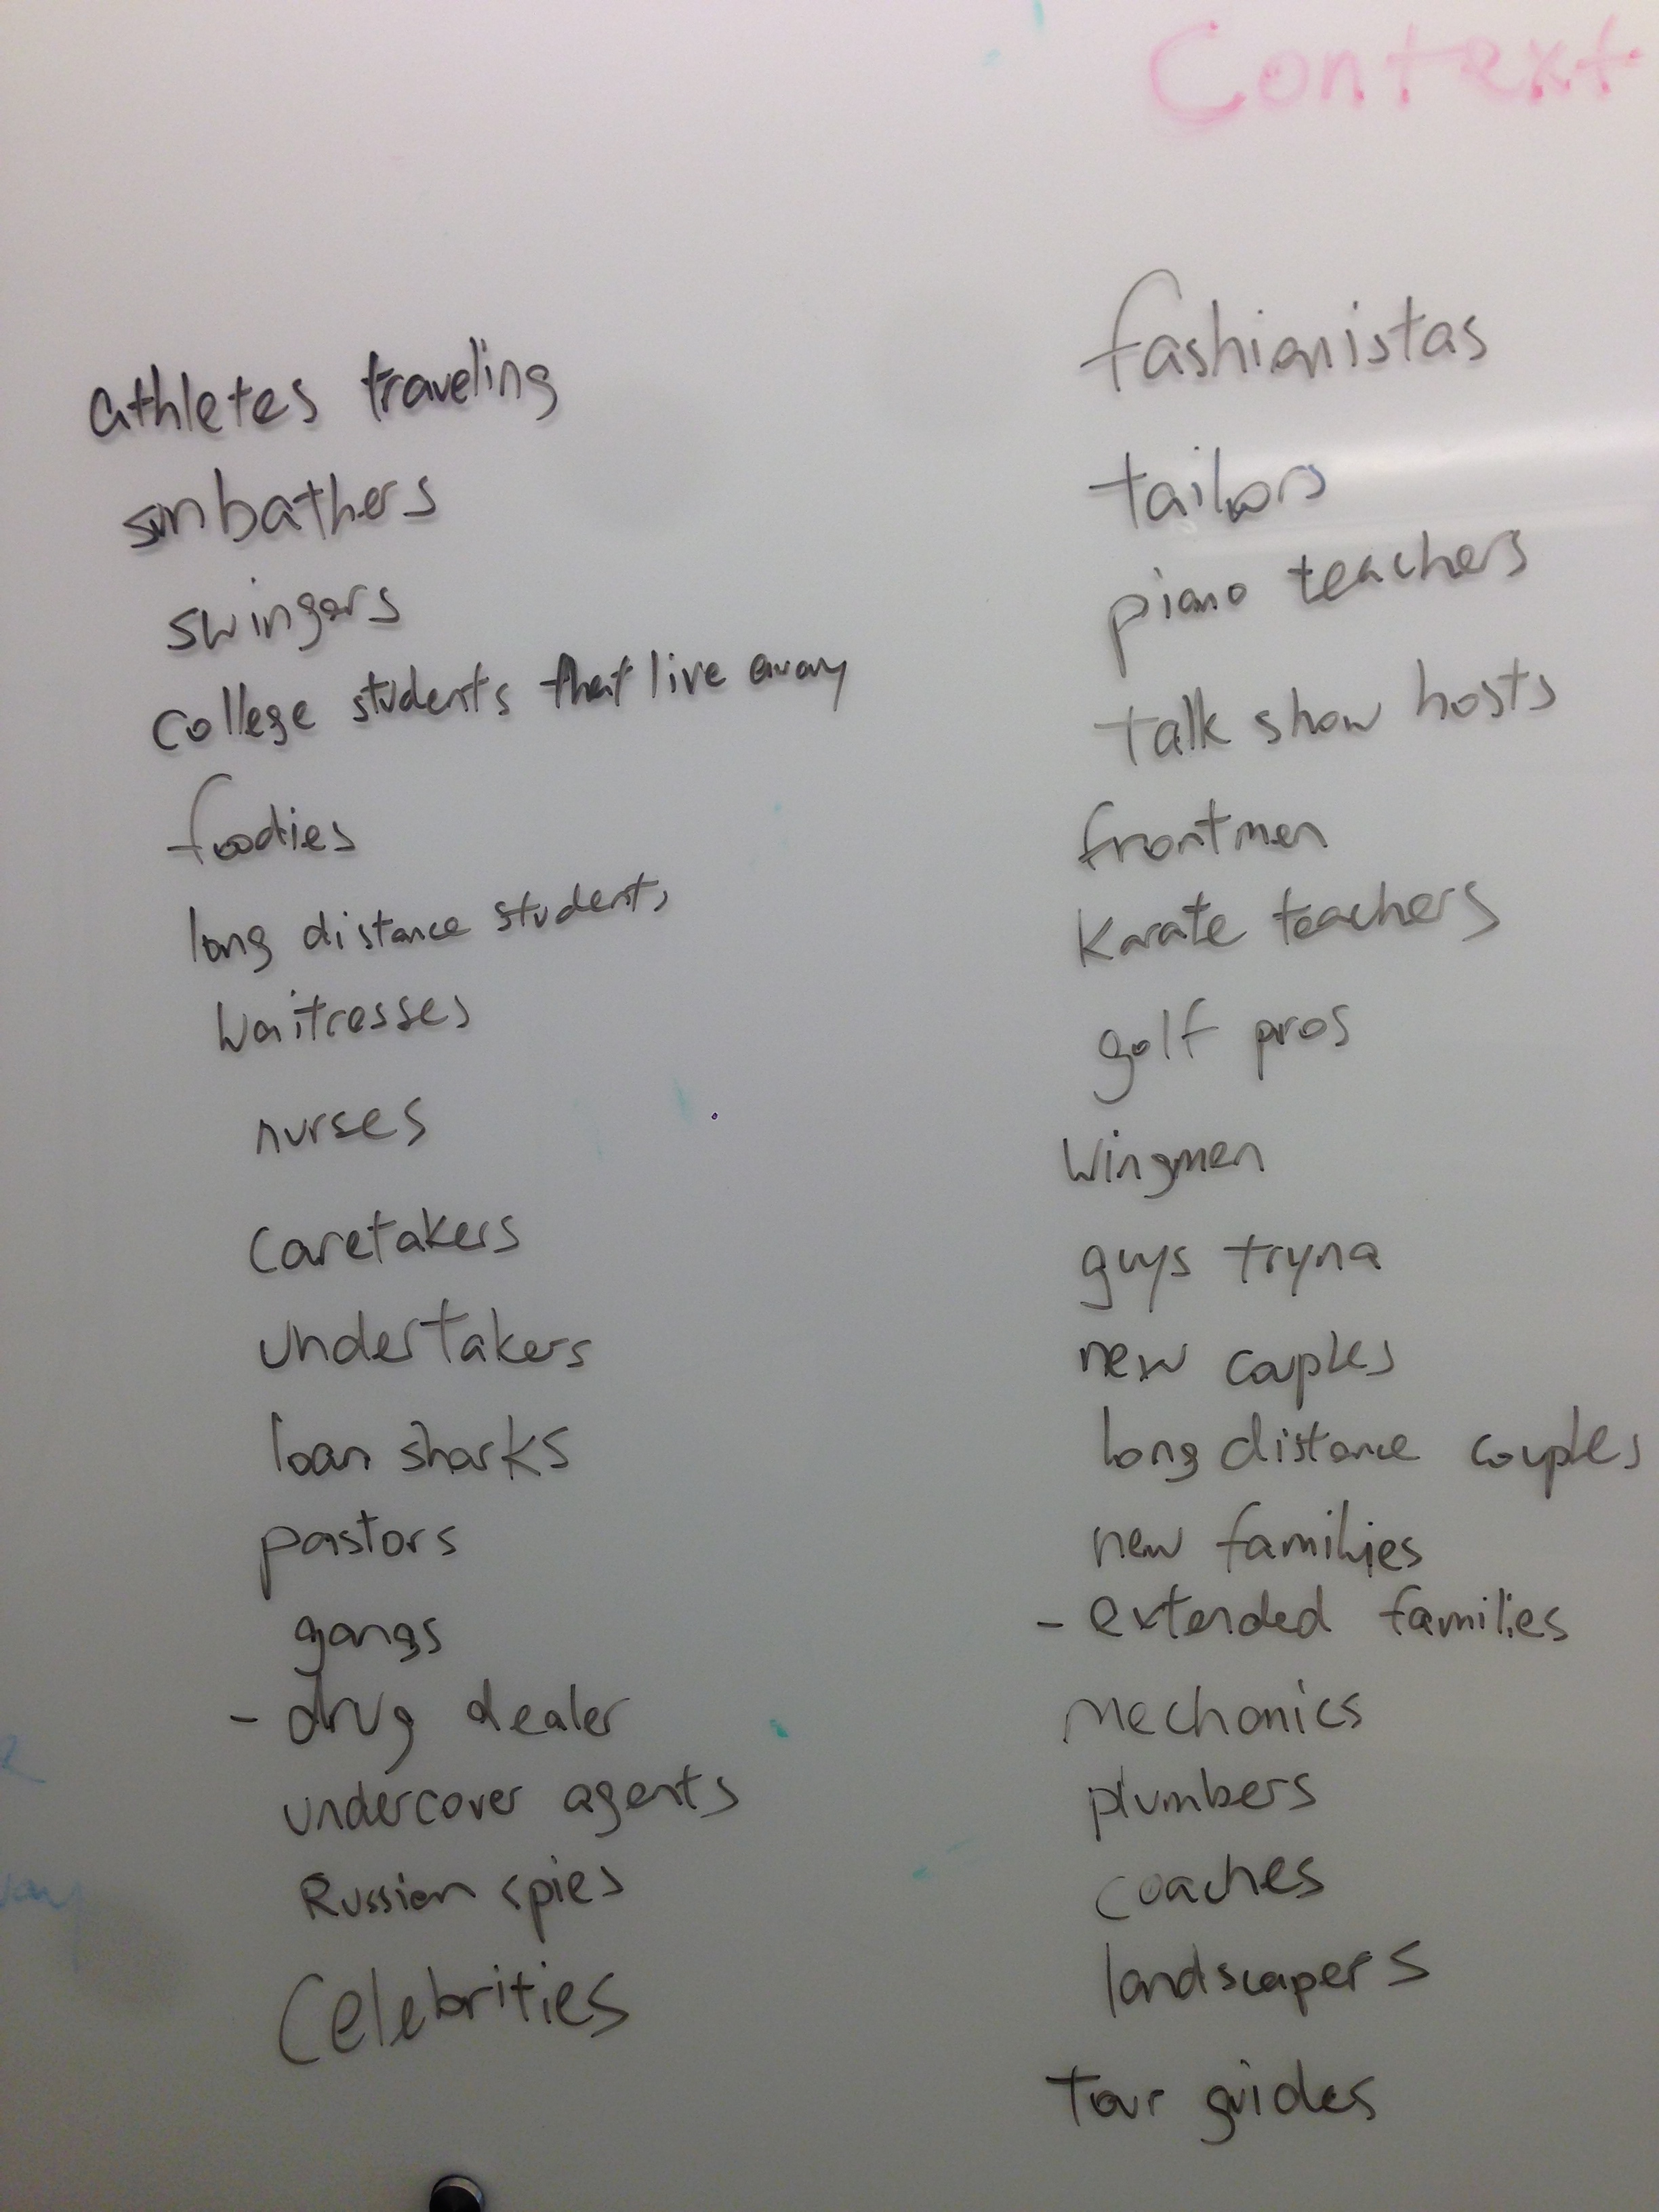 Context
athletes traveling
sunbathers
swingers
college students that live away
foodies
long distance students
waitresses
nurses
caretakers
undertakers
loan sharks
pastors
gangs
- drug dealer
undercover agents
Russian spies
Celebrities
fashionistas
tailors
piano teachers
talk show hosts
frontmen
karate teachers
golf pros
wingmen
guys tryna
new couples
long distance couples
new families
- extended families
mechanics
plumbers
coaches
landscapers
tour guides